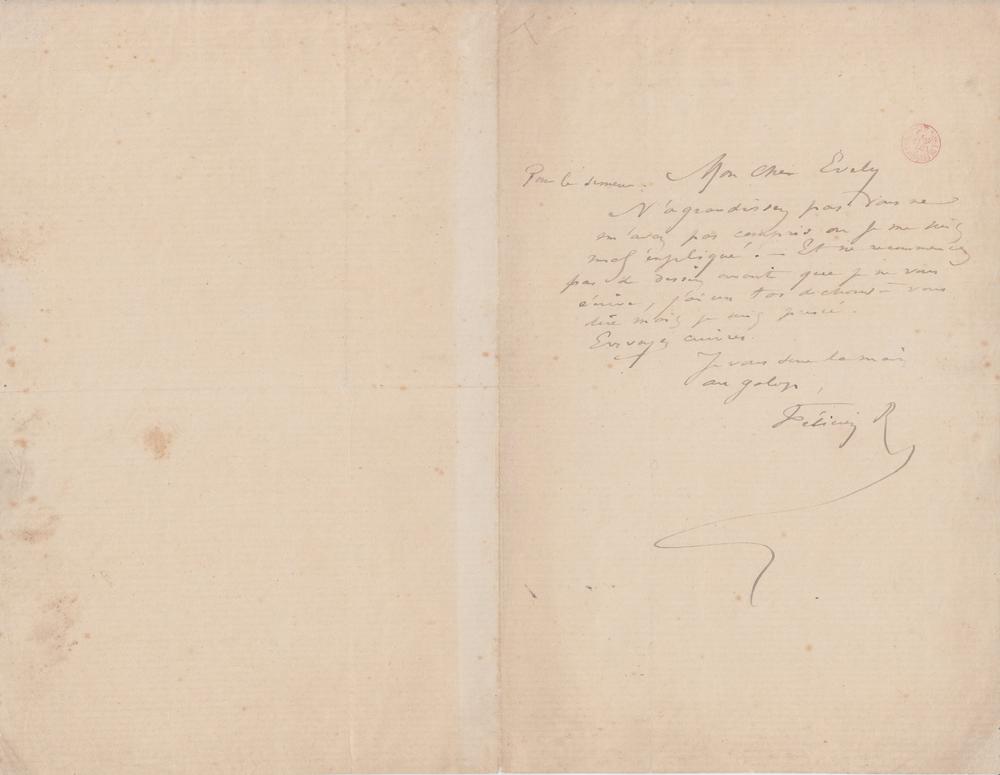 Mon cher Evely
N'agrandissez pas Vous ne
m'avez pas compris ou je me suis
mal expliqué! – Et ne recommencez
pas de dessin avant que je ne vous
écrive, j'ai un tas de choses à vous
dire mais je suis pressé.
Envoyez cuivres.
Je vous serre la main
au galop,
Félicien R